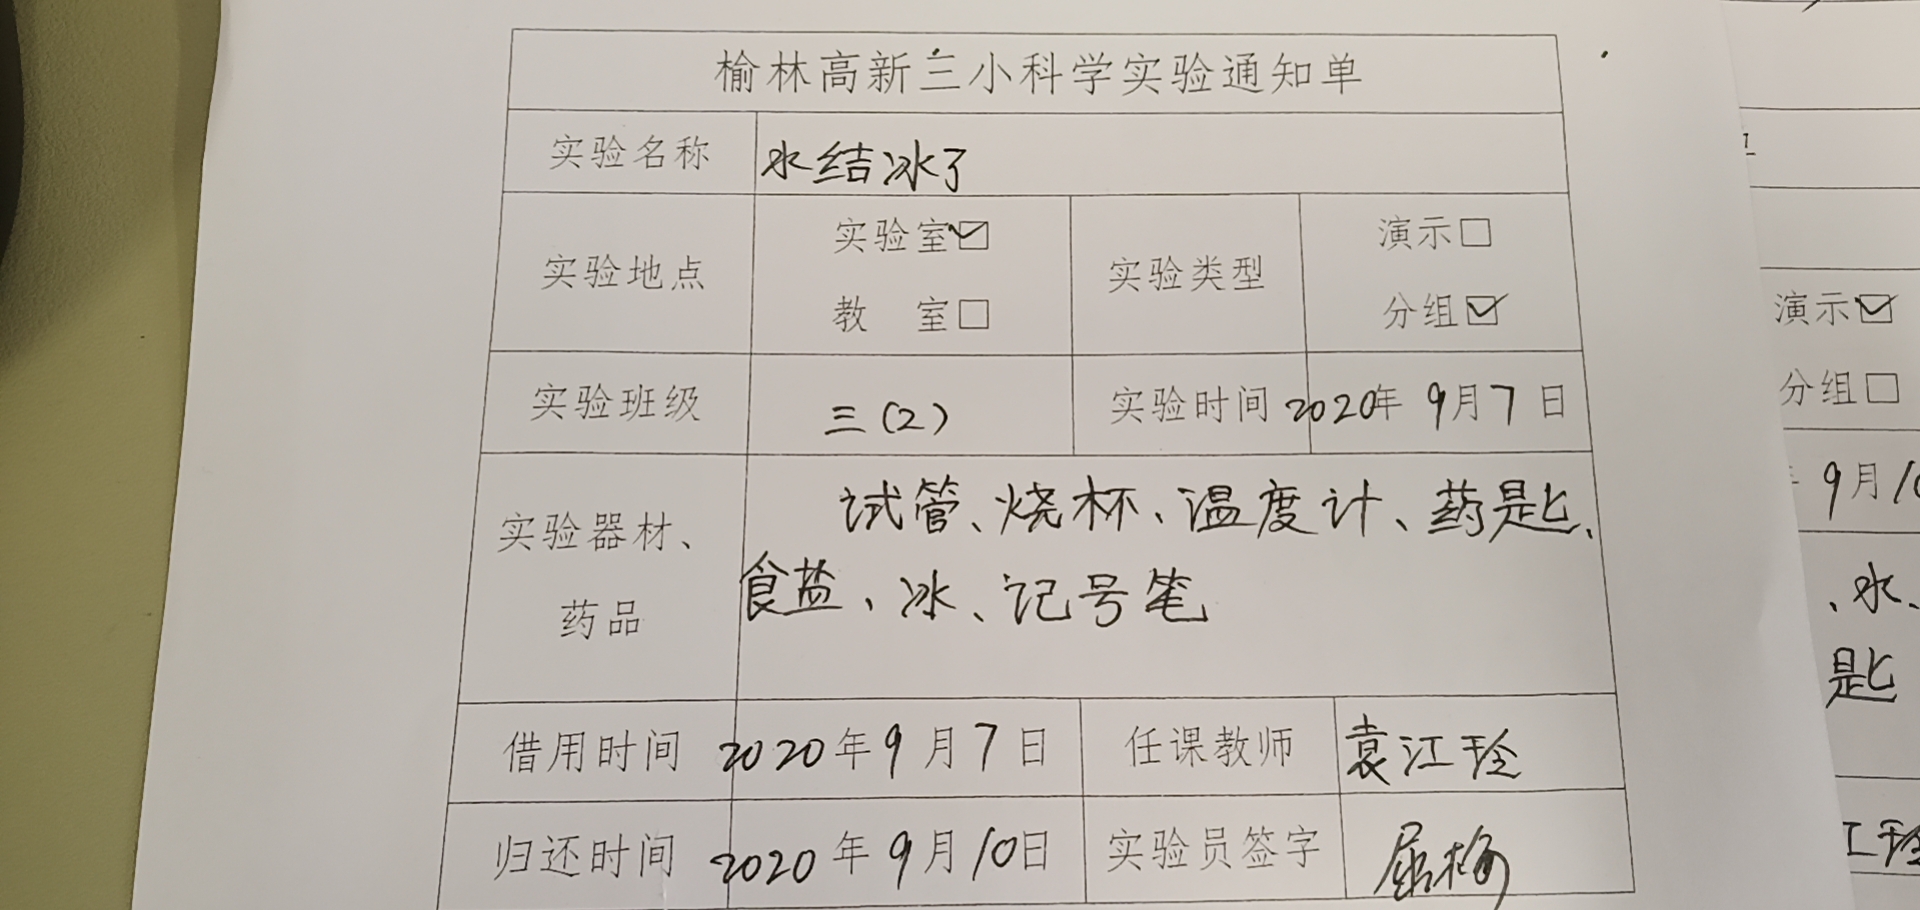 榆林高新三小科学实验通知单
实验名称 水结冰了
实验地点 实验室☑ 实验类型 演示□
教 室□ 分组☑
实验班级 三(2) 实验时间 2020年9月7日
实验器材、药品 试管、烧杯、温度计、药匙、
食盐、冰、记号笔
借用时间 2020年9月7日 任课教师 袁江玲
归还时间 2020年9月10日 实验员签字 屈梅
演示☑
分组□
9月10
、水、
匙
江玲